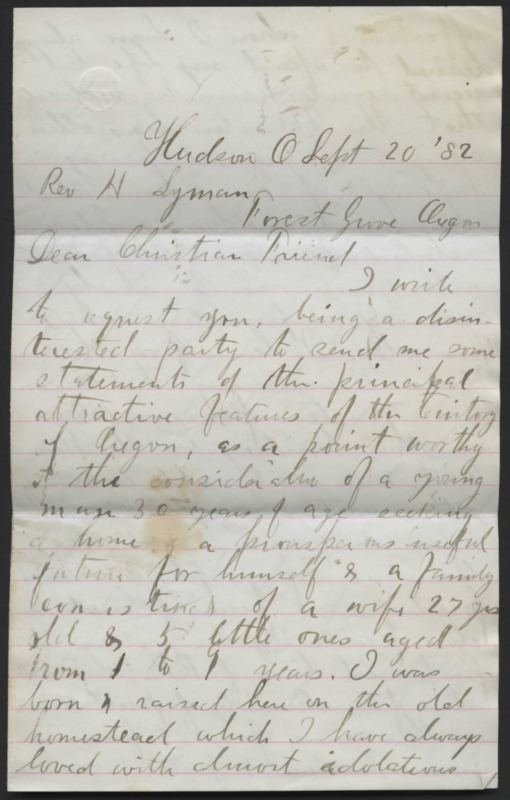 Hudson O Sept 20 '82
Rev H Lyman
Forest Grove Oregon
Dear Christian Friend
I write
to request you, being a disin-
terested party to send me some
statements of the principal
attractive features of the
of Oregon, as a point worthy
of the consideration of a young
man 30 years of age seeking
a home & a prosperous useful
future for himself & a family
consisting of a wife 27 yrs
old & 5 little ones aged
from 1 to 9 years. I was
born & raised here on the old
homestead which I have always
loved with almost idolatrous